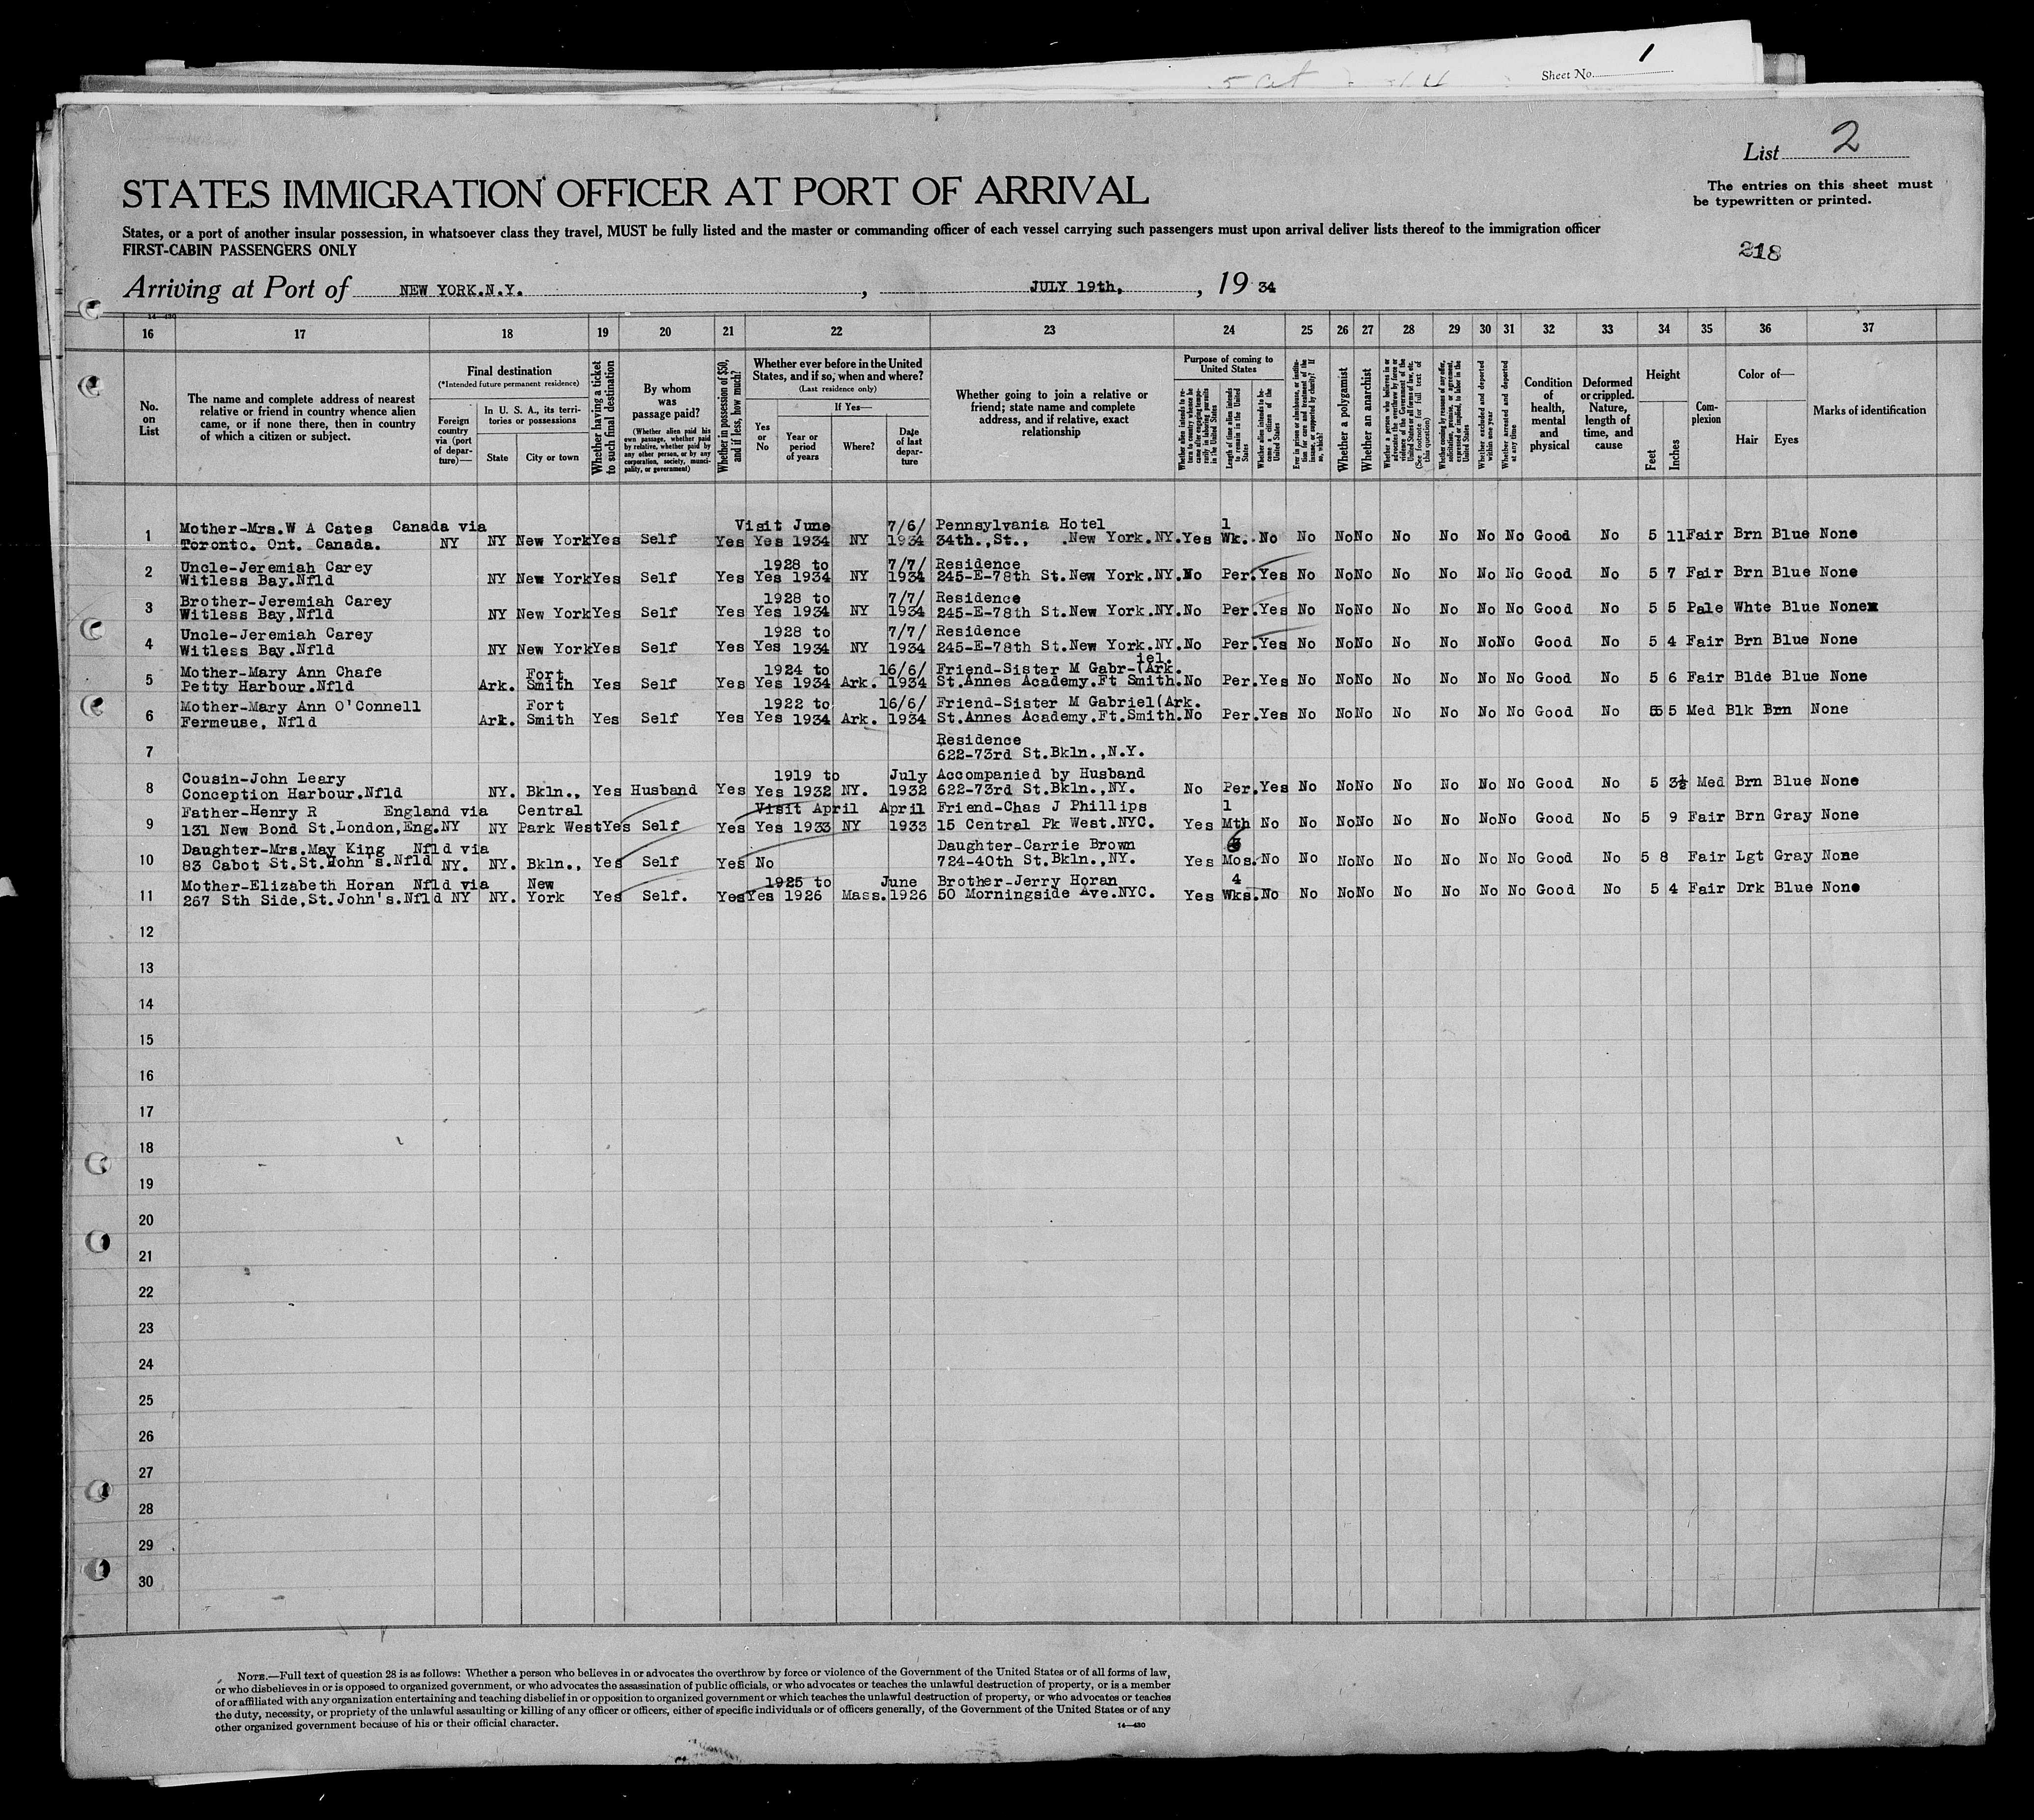 1
Sheet No.
List 2
The entries on this sheet must
be typewritten or printed.
STATES IMMIGRATION OFFICER AT PORT OF ARRIVAL
States, or a port of another insular possession, in whatsoever class they travel, MUST be fully listed and the master or commanding officer of each vessel carrying such passengers must upon arrival deliver lists thereof to the immigration officer
FIRST-CABIN PASSENGERS ONLY
218
Arriving at Port of NEW YORK.N.Y. , JULY 19th, , 19 34
14-430
16 17 18 19 20 21 22 23 24 25 26 27 28 29 30 31 32 33 34 35 36 37
No. on List
The name and complete address of nearest relative or friend in country whence alien came, or if none there, then in country of which a citizen or subject.
Final destination
(*Intended future permanent residence)
Foreign country via (port of departure)—
In U. S. A., its territories or possessions
State
City or town
Whether having a ticket to such final destination
By whom was passage paid?
(Whether alien paid his own passage, whether paid by relative, whether paid by any other person, or by any corporation, society, municipality, or government)
Whether in possession of $50, and if less, how much?
Whether ever before in the United States, and if so, when and where?
(Last residence only)
If Yes—
Yes or No
Year or period of years
Where?
Date of last departure
Whether going to join a relative or friend; state name and complete address, and if relative, exact relationship
Purpose of coming to United States
Whether alien intends to return to country whence he came after engaging temporarily in laboring pursuits in the United States
Length of time alien intends to remain in the United States
Whether alien intends to become a citizen of the United States
Ever in prison or almshouse, or institution for care and treatment of the insane, or supported by charity? If so, which?
Whether a polygamist
Whether an anarchist
Whether a person who believes in or advocates the overthrow by force or violence of the Government of the United States or all forms of law, etc. (See footnote for full text of this question)
Whether coming by reason of any offer, solicitation, promise, or agreement, expressed or implied, to labor in the United States
Whether excluded and deported within one year
Whether arrested and deported at any time
Condition of health, mental and physical
Deformed or crippled. Nature, length of time, and cause
Height
Feet
Inches
Complexion
Color of—
Hair
Eyes
Marks of identification
Mother-Mrs.W A Cates Canada via Visit June 7/6/ Pennsylvania Hotel 1
1 Toronto. Ont. Canada. NY NY New York Yes Self Yes Yes 1934 NY 1934 34th.,St., .New York.NY. Yes Wk. No No No No No No No No Good No 5 11 Fair Brn Blue None
Uncle-Jeremiah Carey 1928 to 7/7/ Residence
2 Witless Bay.Nfld NY New York Yes Self Yes Yes 1934 NY 1934 245-E-78th St.New York.NY. No Per. Yes No No No No No No No Good No 5 7 Fair Brn Blue None
Brother-Jeremiah Carey 1928 to 7/7/ Residence
3 Witless Bay,Nfld NY New York Yes Self Yes Yes 1934 NY 1934 245-E-78th St.New York.NY. No Per. Yes No No No No No No No Good No 5 5 Pale Whte Blue None
Uncle-Jeremiah Carey 1928 to 7/7/ Residence
4 Witless Bay.Nfld NY New York Yes Self Yes Yes 1934 NY 1934 245-E-78th St.New York.NY. No Per. Yes No No No No No No No Good No 5 4 Fair Brn Blue None
Mother-Mary Ann Chafe Fort 1924 to 16/6/ Friend-Sister M Gabr-iel.(Ark.
5 Petty Harbour.Nfld Ark. Smith Yes Self Yes Yes 1934 Ark. 1934 St.Annes Academy.Ft Smith. No Per. Yes No No No No No No No Good No 5 6 Fair Blde Blue None
Mother-Mary Ann O'Connell Fort 1922 to 16/6/ Friend-Sister M Gabriel(Ark.
6 Fermeuse, Nfld Ark. Smith Yes Self Yes Yes 1934 Ark. 1934 St.Annes Academy.Ft.Smith. No Per. Yes No No No No No No No Good No 5 5 Med Blk Brn None
Residence
7 622-73rd St.Bkln.,N.Y.
Cousin-John Leary 1919 to July Accompanied by Husband
8 Conception Harbour.Nfld NY. Bkln., Yes Husband Yes Yes 1932 NY. 1932 622-73rd St.Bkln.,NY. No Per. Yes No No No No No No No Good No 5 3½ Med Brn Blue None
Father-Henry R England via Central Visit April April Friend-Chas J Phillips 1
9 131 New Bond St.London,Eng. NY NY Park West Yes Self Yes Yes 1933 NY 1933 15 Central Pk West.NYC. Yes Mth No No No No No No No No Good No 5 9 Fair Brn Gray None
Daughter-Mrs.May King Nfld via Daughter-Carrie Brown 6
10 83 Cabot St.St.John's.Nfld NY. NY. Bkln., Yes Self Yes No 724-40th St.Bkln.,NY. Yes Mos. No No No No No No No No Good No 5 8 Fair Lgt Gray None
Mother-Elizabeth Horan Nfld via New 1925 to June Brother-Jerry Horan 4
11 267 Sth Side,St.John's.Nfld NY NY. York Yes Self. Yes Yes 1926 Mass. 1926 50 Morningside Ave.NYC. Yes Wks. No No No No No No No No Good No 5 4 Fair Drk Blue None
12
13
14
15
16
17
18
19
20
21
22
23
24
25
26
27
28
29
30
NOTE.—Full text of question 28 is as follows: Whether a person who believes in or advocates the overthrow by force or violence of the Government of the United States or of all forms of law,
or who disbelieves in or is opposed to organized government, or who advocates the assassination of public officials, or who advocates or teaches the unlawful destruction of property, or is a member
of or affiliated with any organization entertaining and teaching disbelief in or opposition to organized government or which teaches the unlawful destruction of property, or who advocates or teaches
the duty, necessity, or propriety of the unlawful assaulting or killing of any officer or officers, either of specific individuals or of officers generally, of the Government of the United States or of any
other organized government because of his or their official character.
14—430